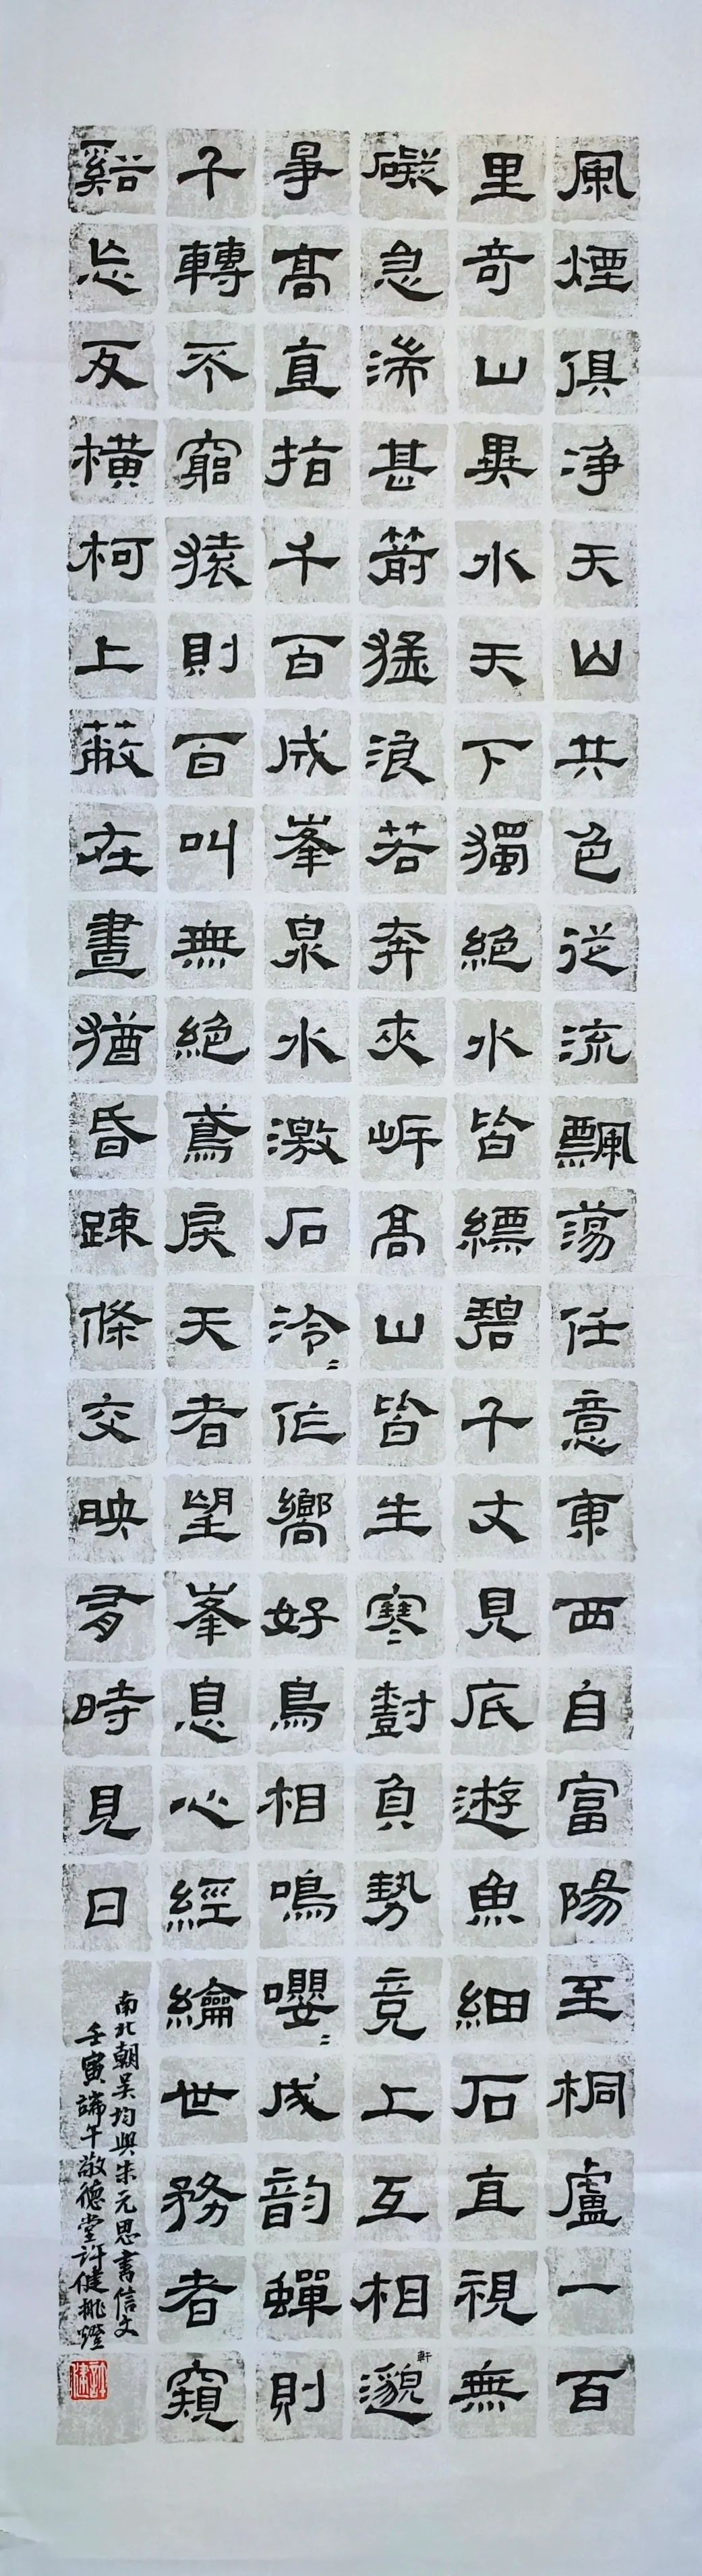 風煙俱净天山共色從流飄蕩任意東西自富陽至桐盧一百
里奇山異水天下獨絕水皆縹碧千丈見底遊魚細石直視無
礙急湍甚箭猛浪若奔夾岸高山皆生寒樹負勢竞上互相軒邈
爭高直指千百成峯泉水激石泠〻作響好鳥相鳴嚶〻成韵蟬則
千轉不窮猿則百叫無絕鳶戾天者望峯息心經綸世務者窺
谿忘反橫柯上蔽在晝猶昏疎條交映有時見日
南北朝吴均與朱元思書信文
壬寅端午敬德堂許健挑燈
許健